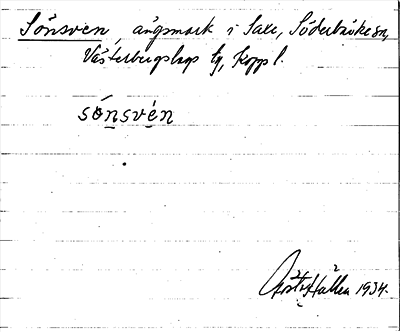 Sönsven, ängsmark i Saxe, Söderbärke sn,
Västerbergslags tg, Kopp l.
sónsvén
Hallén 1934.